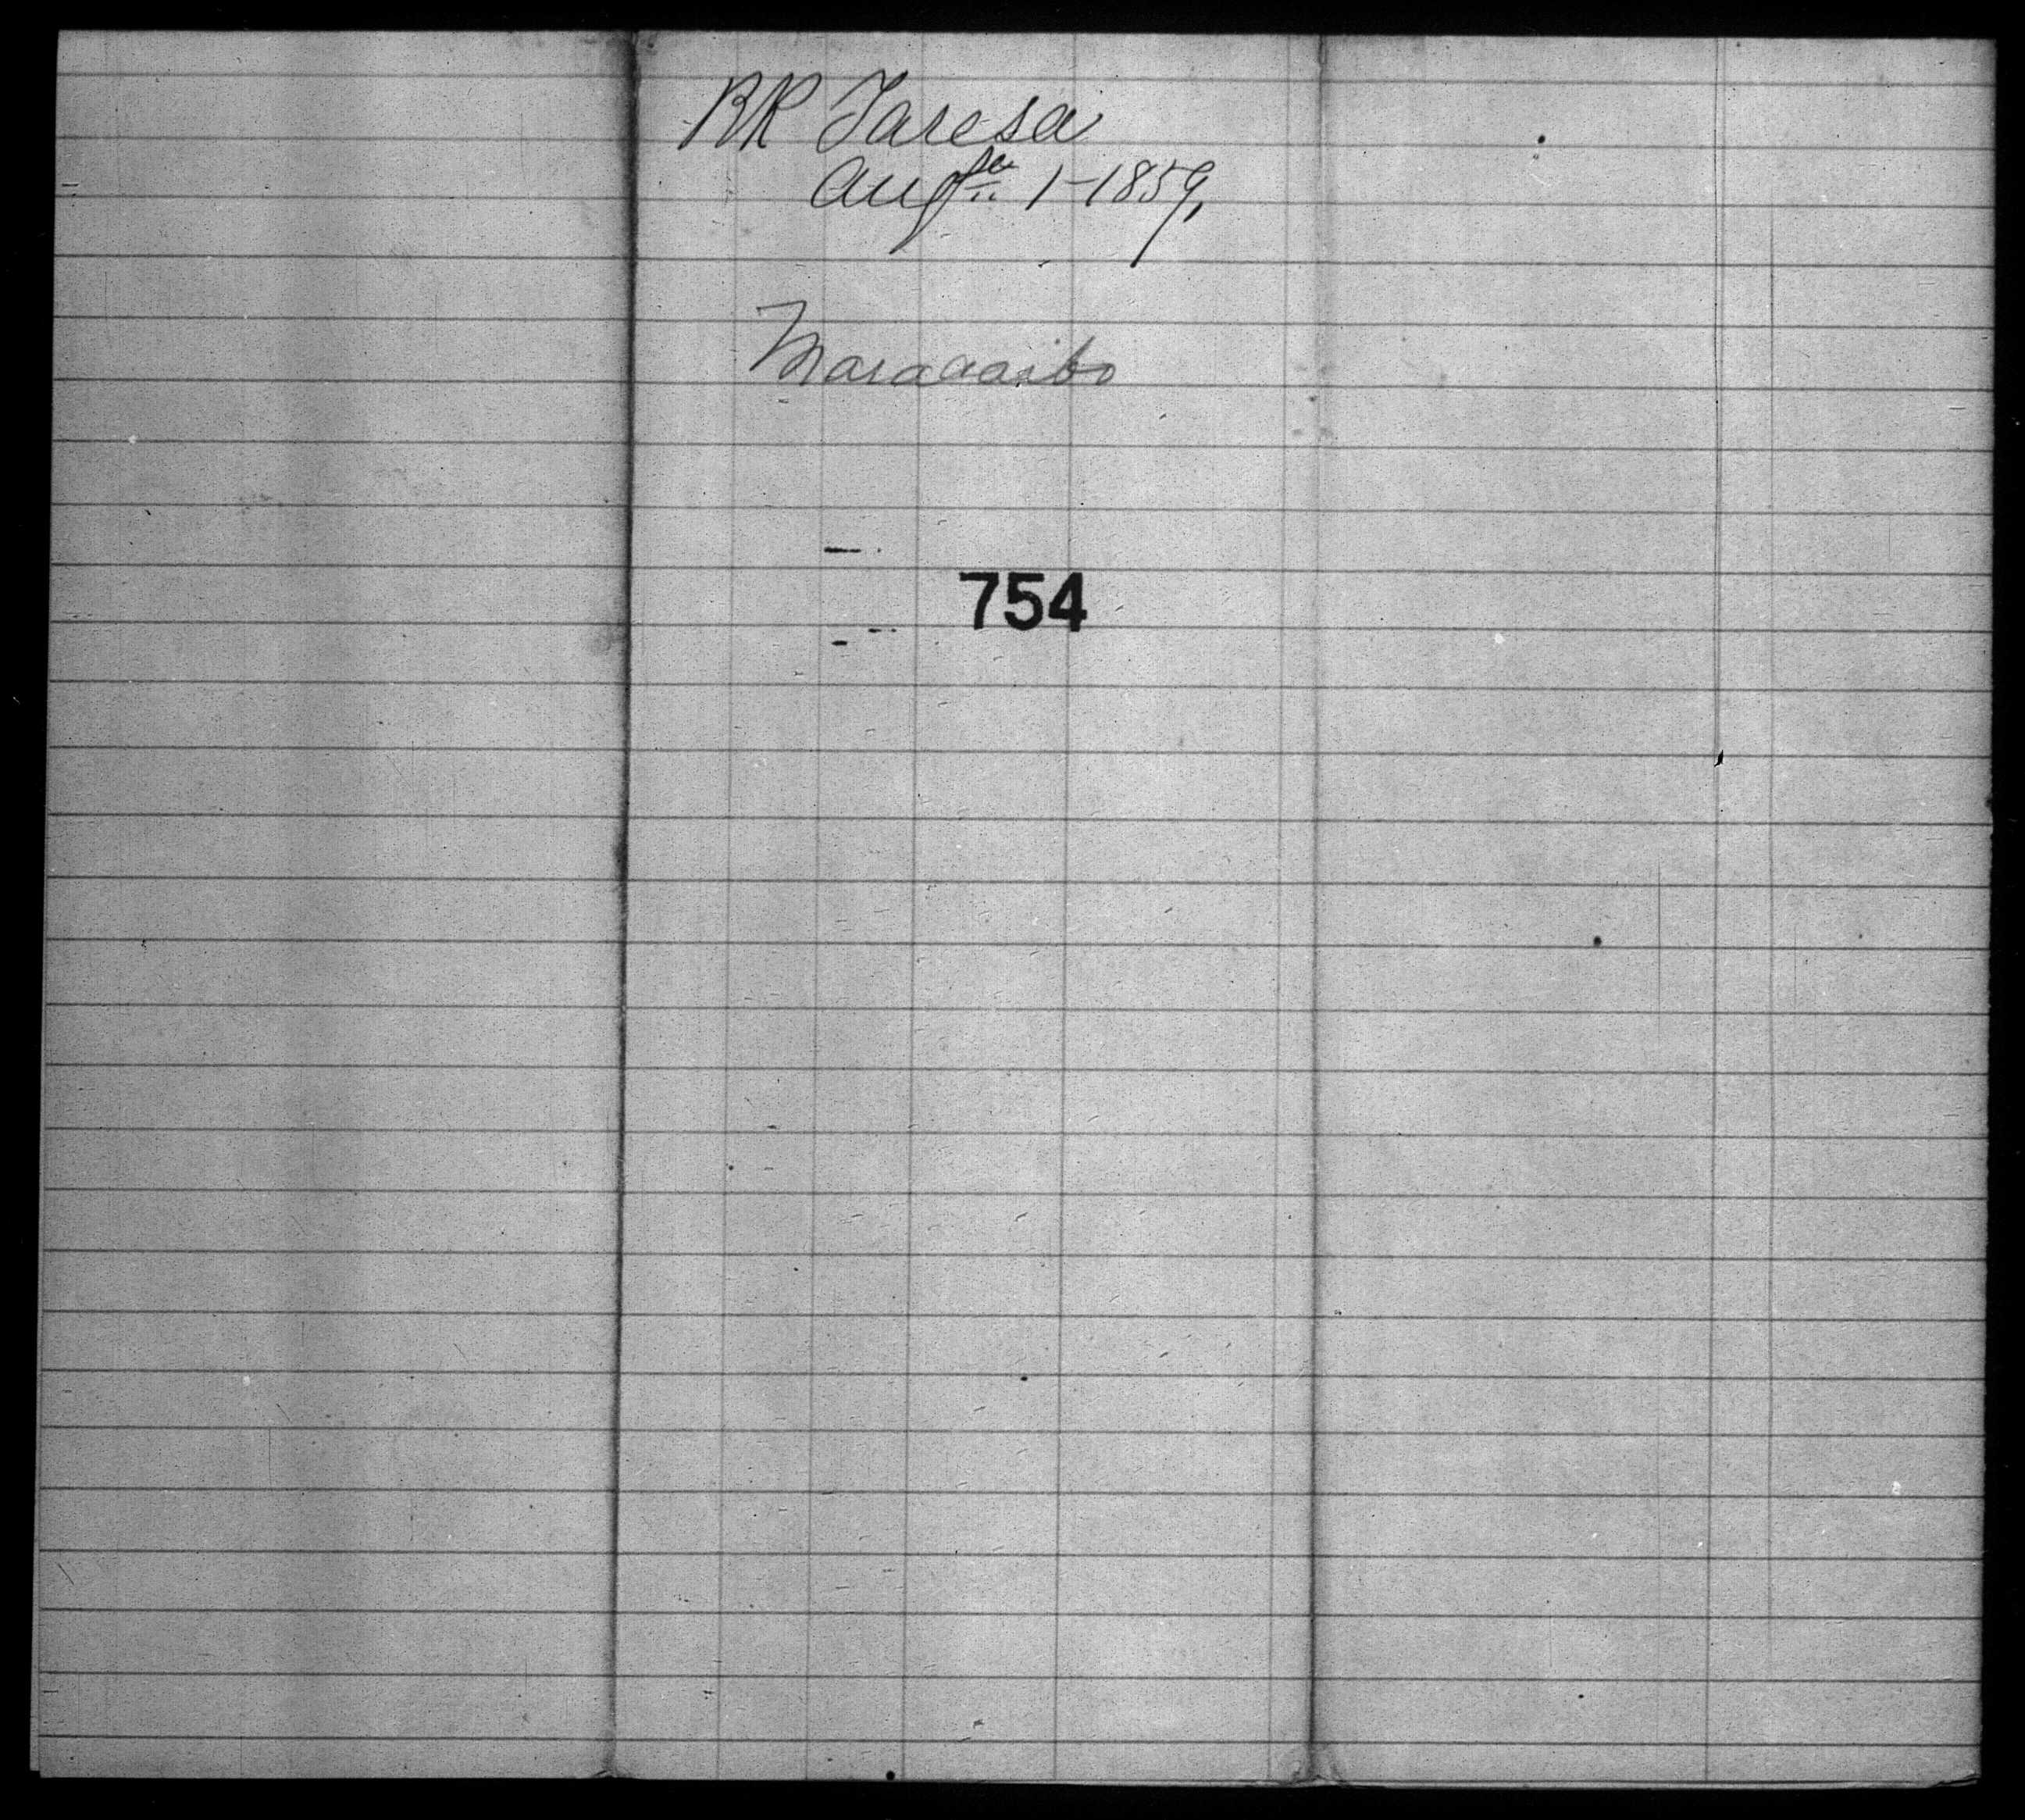 BK Taresa
Augst 1-1859,
Maracaibo
754